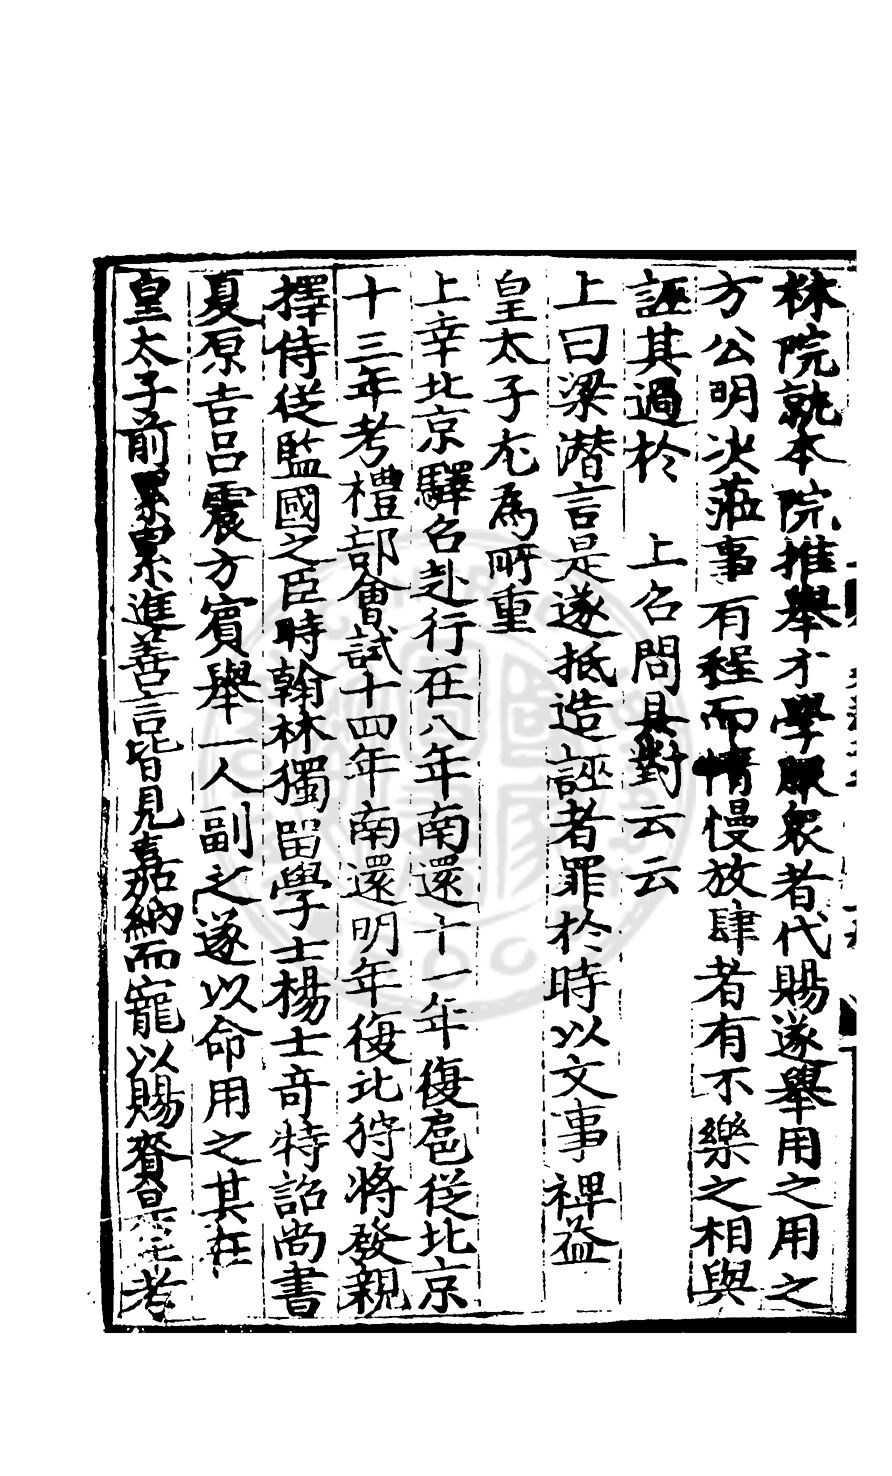 林院就本院推舉才學服衆者代賜遂舉用之用之
方公明决蒞事有程而惰慢放肆者有不樂之相與
誣其過於　上召問具對云云
上曰梁潜言是遂抵造誣者罪於時以文事裨益
皇太子尤為所重
上幸北京驛召赴行在八年南還十一年復扈從北京
十三年考禮部會試十四年南還明年復北狩將發親
擇侍從監國之臣時翰林獨留學士楊士奇特詔尚書
夏原吉呂震方賓舉一人副之遂以命用之其在
皇太子前累累進善言皆見嘉納而寵以賜賚